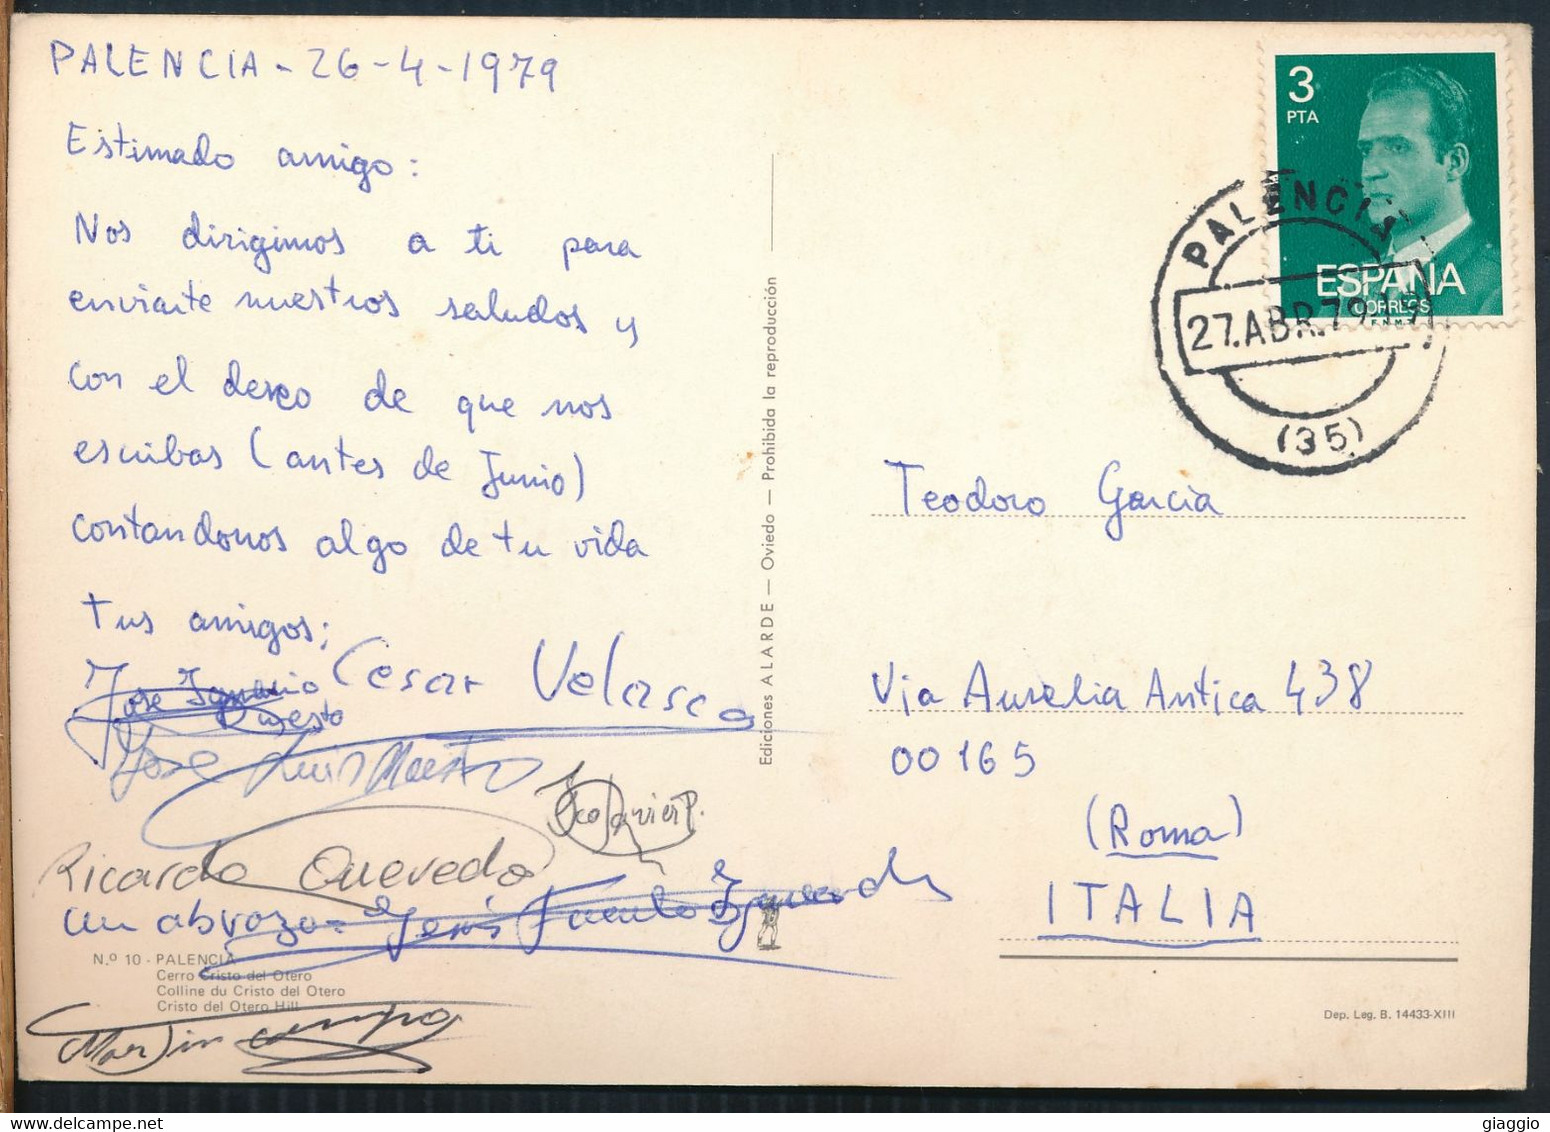 PALENCIA - 26-4-1979
Estimado amigo:
Nos dirigimos a ti para
enviarte nuestros saludos y
con el deseo de que nos
escribas (antes de Junio)
contandonos algo de tu vida
tus amigos;
Jose Ignacio
Cesar Velasco
Jose Luis Maestro
Fco Javier P.
Ricardo Quevedo
un abrazo - Jesús
Nº 10 - PALENCIA
Cerro Cristo del Otero
Colline du Cristo del Otero
Cristo del Otero Hill
Martin campo
Ediciones ALARDE — Oviedo — Prohibida la reproducción
3
PTA
ESPAÑA
CORREOS
F.N.M.T.
PALENCIA
27.ABR.79
(35)
Teodoro Garcia
Via Aurelia Antica 438
00165
(Roma)
ITALIA
Dep. Leg. B. 14433-XIII
giaggio